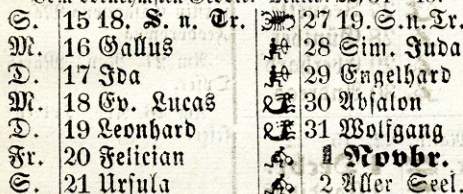 S. 15 18. S. n. Tr. 27 19. S. n. Tr.
M. 16 Gallus 28 Sim. Juda
D. 17 Ida 29 Engelhard
M. 18 Ev. Lucas 30 Absalon
D. 19 Leonhard 31 Wolfgang
Fr. 20 Felician 1 Novbr.
S. 21 Ursula 2 Aller Seel